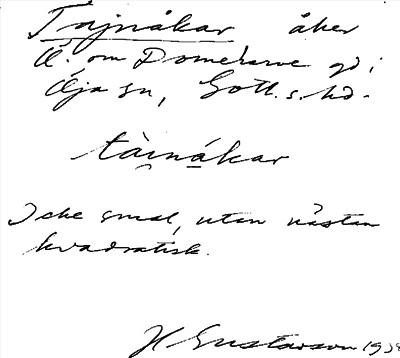 Tajnåkar åker
Ö. om Domerarve gd i
Öja sn, Gotl. s. hd.
tàinákar
Icke smal, utan nästan
kvadratisk.
H Gustavson 193